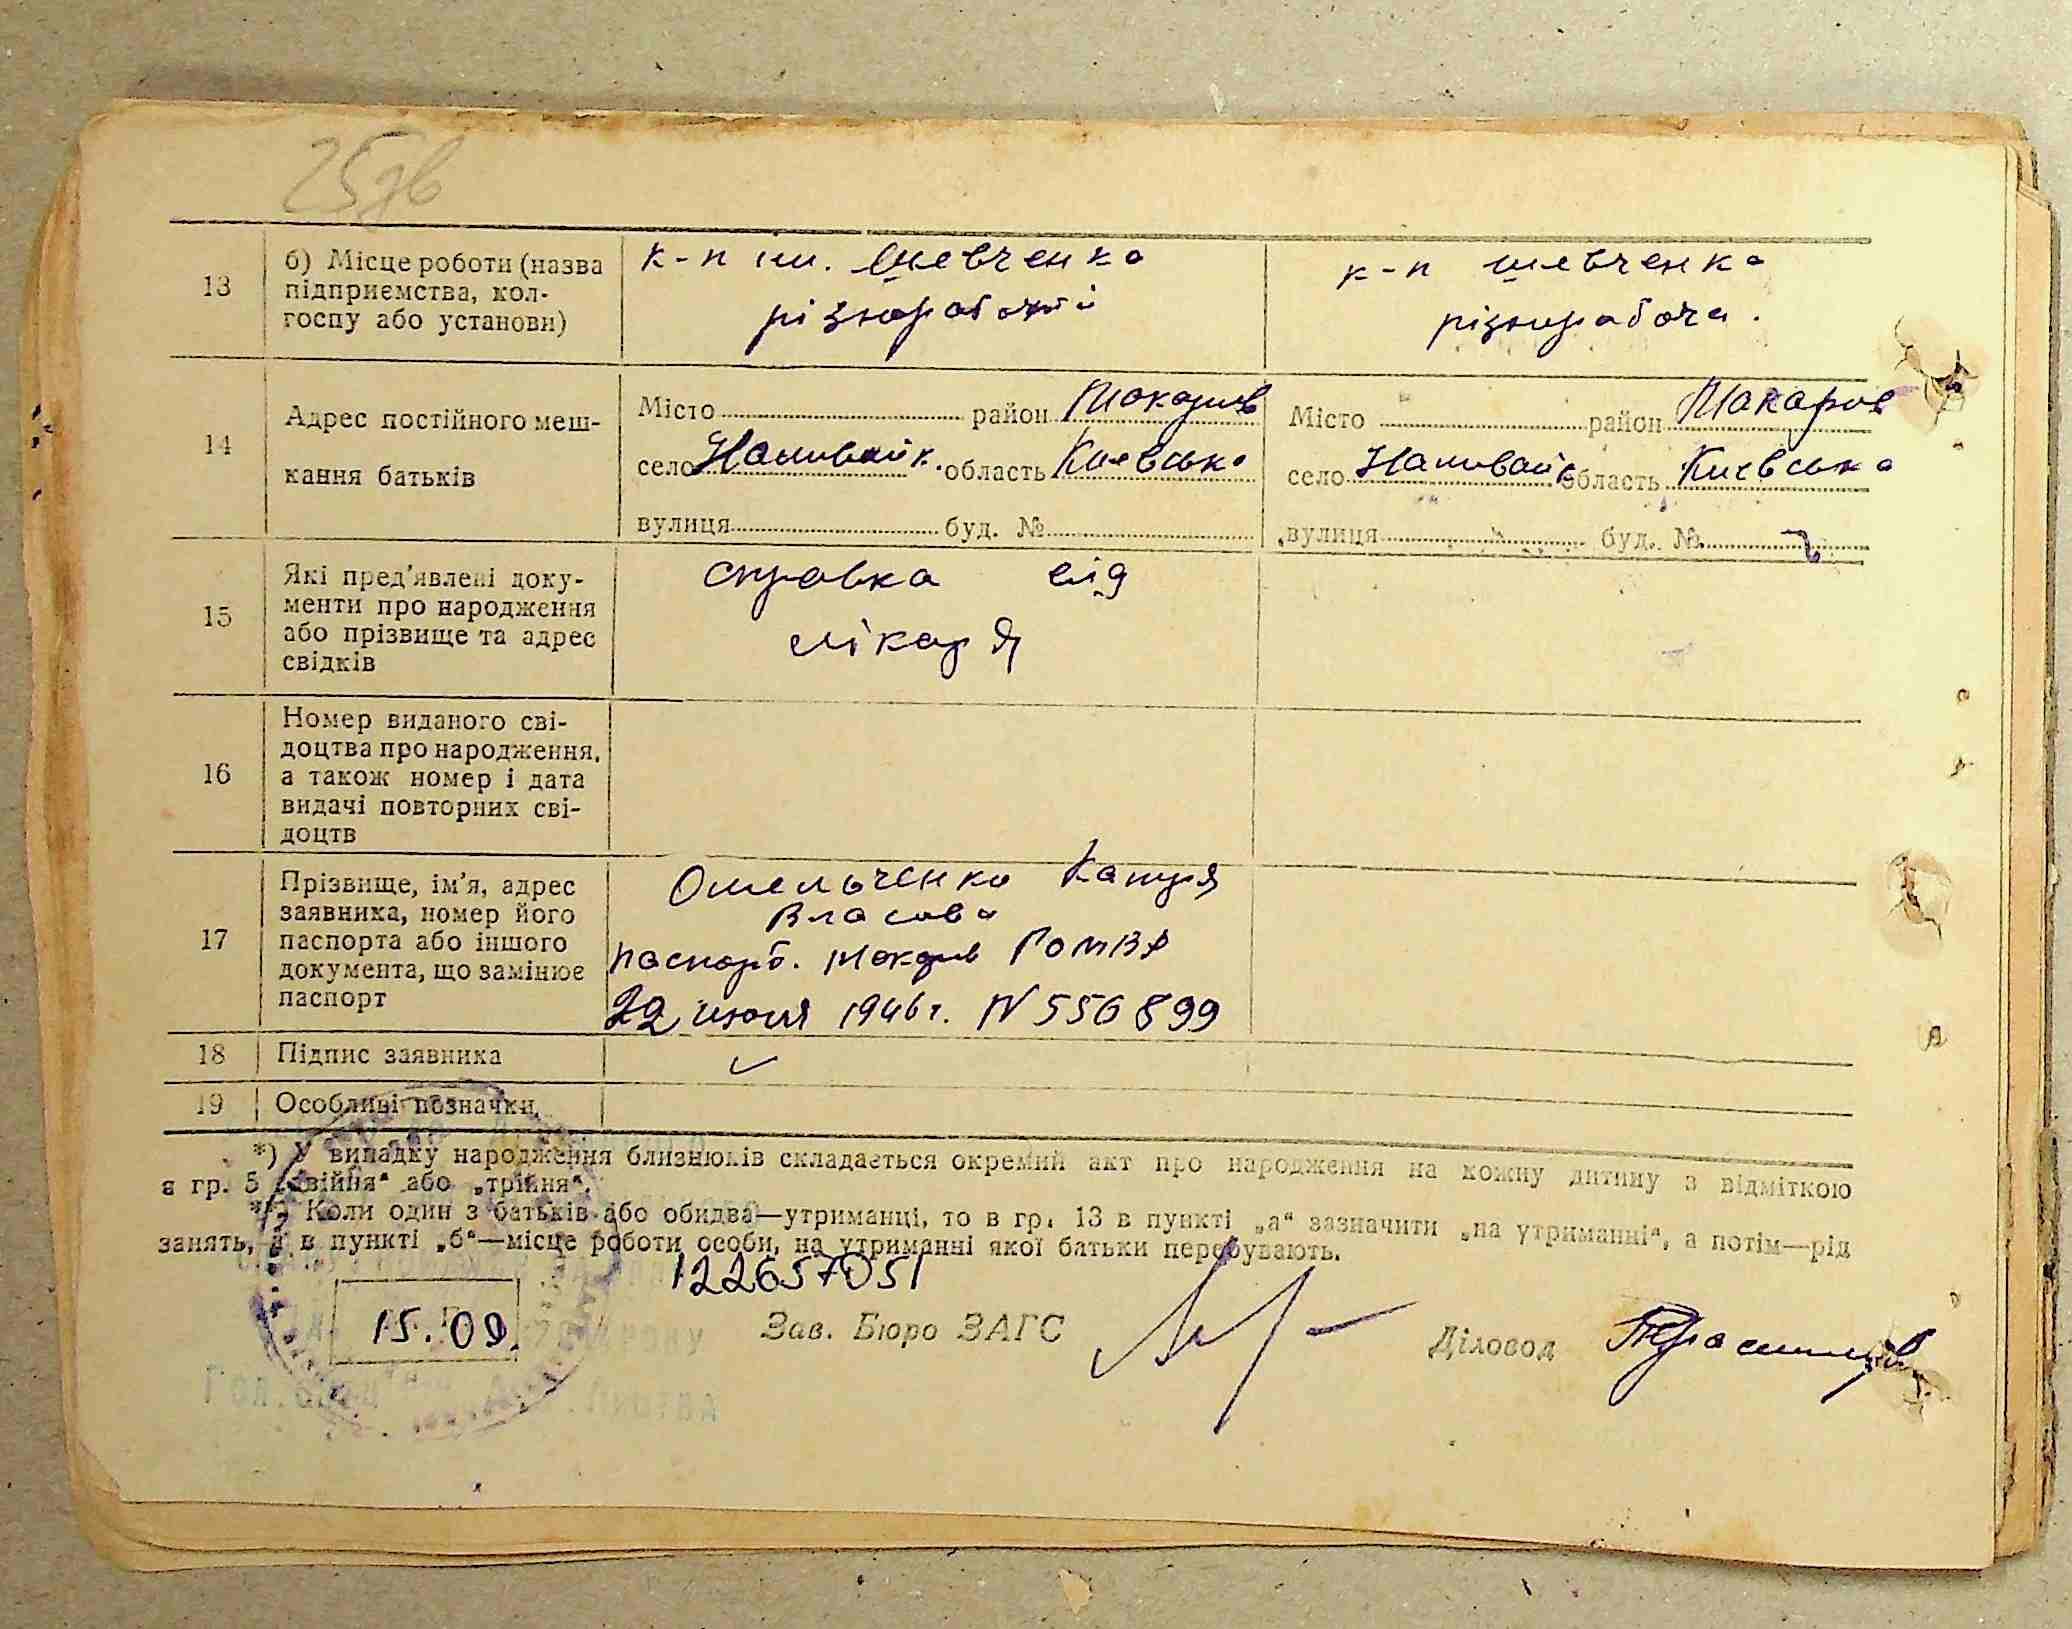 25зв
13
б) Місце роботи (назва
підприємства, кол-
госпу або установи)
к-п ім. Шевченка
різнорабочий
к-п Шевченка
різнорабоча.
14
Адрес постійного меш-
кання батьків
Місто район Макарив
село Наливайк. область Киевська
вулиця буд. №
Місто район Макаров
село Наливайк область Киевська
вулиця буд. №
15
Які пред'явлені доку-
менти про народження
або прізвище та адрес
свідків
справка від
лікаря
16
Номер виданого сві-
доцтва про народження,
а також номер і дата
видачі повторних сві-
доцтв
17
Прізвище, ім'я, адрес
заявника, номер його
паспорта або іншого
документа, що замінює
паспорт
Омельченко Катря
Власова
паспорт. Макарив РОМВД
22 июля 1946 г. N 556899
18 Підпис заявника
19 Особливі позначки
*) У випадку народження близнюків складається окремий акт про народження на кожну дитину з відміткою
в гр. 5 „двійня“ або „трійня“.
**) Коли один з батьків або обидва—утриманці, то в гр. 13 в пункті „а“ зазначити „на утриманні“, а потім—рід
занять, а в пункті „б“—місце роботи особи, на утриманні якої батьки перебувають.
122657051
15.09.
Зав. Бюро ЗАГС
Діловод